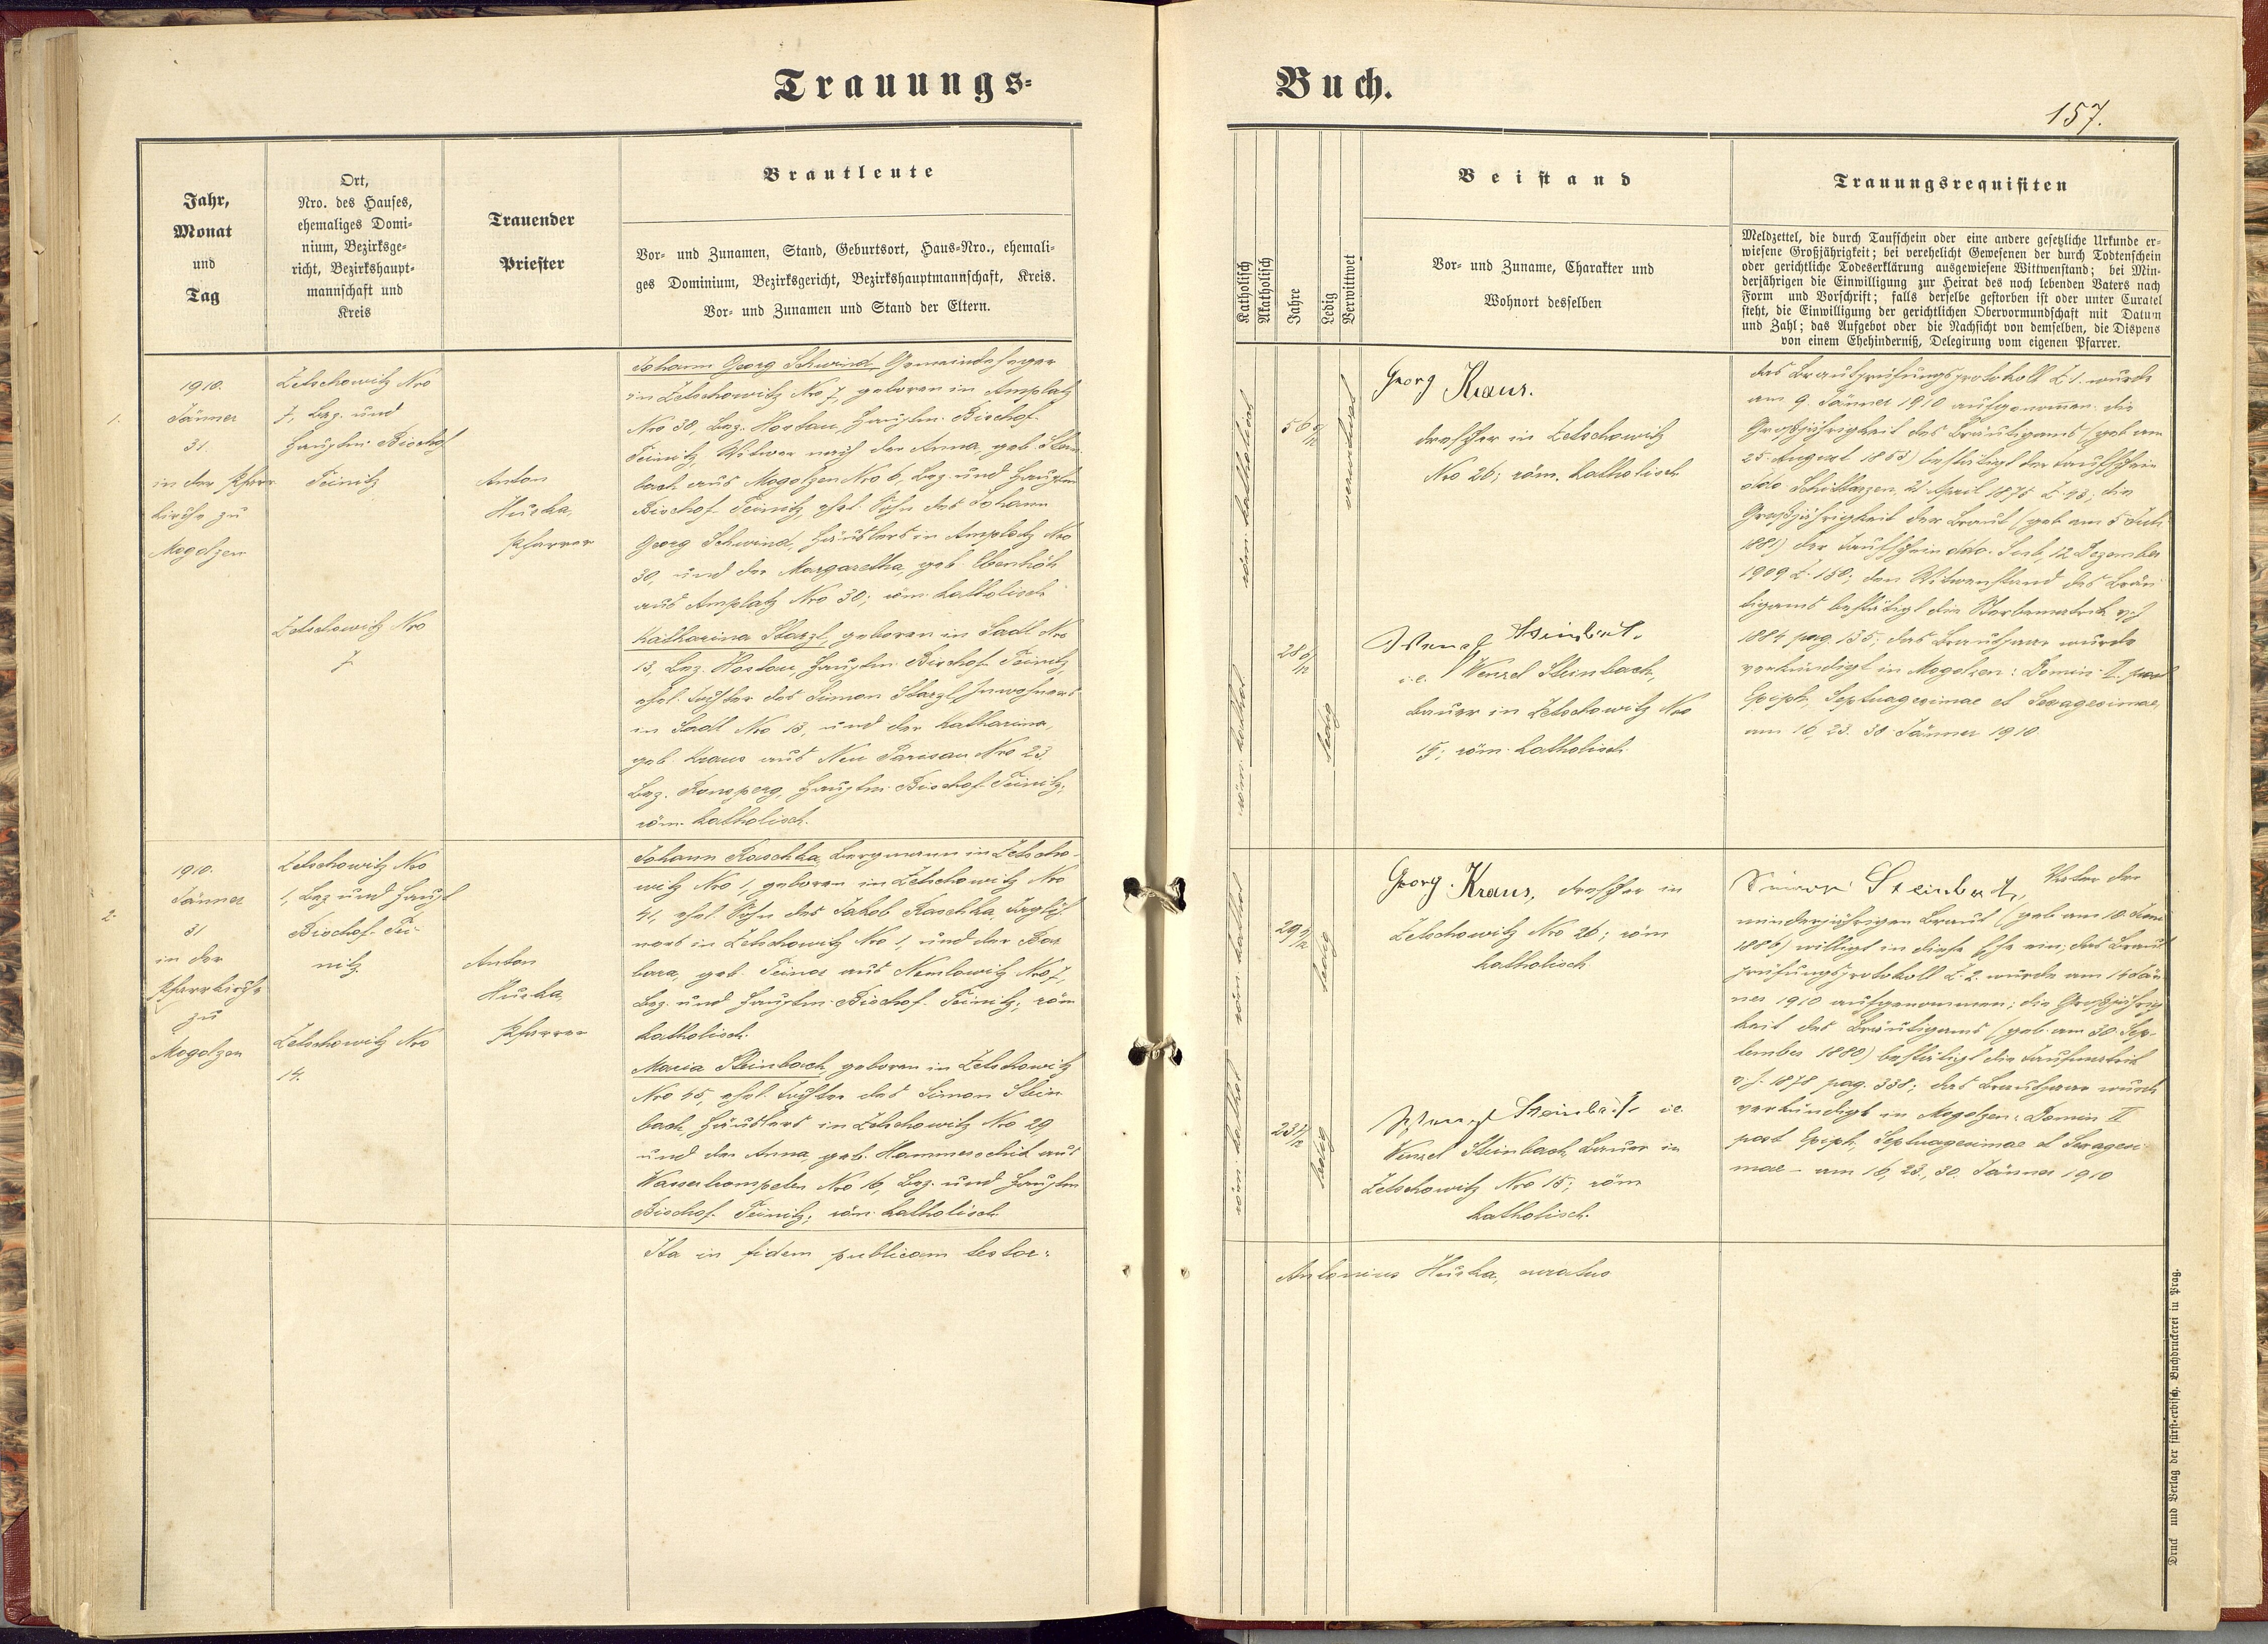 Trauungs-
Buch.
157.
Jahr,
Monat
und
Tag
Ort,
Nro. des Hauses,
ehemaliges Domi-
nium, Bezirksge-
richt, Bezirkshaupt-
mannschaft und
Kreis
Trauender
Priester
Brautleute
Vor- und Zunamen, Stand, Geburtsort, Haus-Nro., ehemali-
ges Dominium, Bezirksgericht, Bezirkshauptmannschaft, Kreis.
Vor- und Zunamen und Stand der Eltern.
Katholisch
Akatholisch
Jahre
Ledig
Verwittwet
Beistand
Vor- und Zuname, Charakter und
Wohnort desselben
Trauungsrequisiten
Meldzettel, die durch Taufschein oder eine andere gesetzliche Urkunde er-
wiesene Großjährigkeit; bei verehelicht Gewesenen der durch Todtenschein
oder gerichtliche Todeserklärung ausgewiesene Wittwenstand; bei Min-
derjährigen die Einwilligung zur Heirat des noch lebenden Vaters nach
Form und Vorschrift; falls derselbe gestorben ist oder unter Curatel
steht, die Einwilligung der gerichtlichen Obervormundschaft mit Datum
und Zahl; das Aufgebot oder die Nachsicht von demselben, die Dispens
von einem Ehehinderniß, Delegirung vom eigenen Pfarrer.
1.
1910.
Jänner
31.
in der Pfarr
kirche zu
Mogolzen
Zetschowitz Nro
7, Bez. und
Hauptm. Bischof
Teinitz
Zetschowitz Nro
7
Anton
Huska,
Pfarrer
Johann Georg Schwind, Gemeindeheger
in Zetschowitz Nro 7, geboren in Amplatz
Nro 30, Bez. Hostau, Hauptm. Bischof-
Teinitz, Witwer nach der Anna, geb. Stein
bach aus Mogolzen Nro 6, Bez. und Hauptm
Bischof Teinitz, ehel. Sohn des Johann
Georg Schwind, Häuslers in Amplatz Nro
30, und der Margaretha, geb. Ebenhöh
aus Amplatz Nro 30; röm. katholisch
Katharina Starzl, geboren in Sadl Nro
13, Bez. Hostau, Hauptm. Bischof Teinitz,
ehel. Tochter des Simon Starzl, Inwohners
in Sadl Nro 13, und der Katharina,
geb. Kraus aus Neu Parisau Nro 23,
Bez. Ronsperg, Hauptm. Bischof Teinitz;
röm. katholisch.
röm. katholisch
56 5/12
verwitwet
röm. kathol.
28 6/12
ledig
Georg Kraus.
Drechsler in Zetschowitz
Nro 26; röm. katholisch
Steinbach.
i. e. Wenzel Steinbach,
Bauer in Zetschowitz Nro
15; röm. katholisch
Das Brautprüfungsprotokoll Z. 1. wurde
am 9. Jänner 1910 aufgenommen; die
Großjährigkeit des Bräutigams (geb. am
25. August 1853) bestätigt der Taufschein
ddo Schüttarzen, 21 April 1875 Z. 43; die
Großjährigkeit der Braut (geb. am 5 Juli
1881) der Taufschein ddo. 12 Dezember
1909 Z. 150; den Witwenstand des Bräu
tigams bestätigt die Sterbematrik v. J.
1884 pag. 135; das Brautpaar wurde
verkündigt in Mogolzen: Domin. II. post
Epiph., Septuagesimae et Sexagesimae
am 16, 23. 30 Jänner 1910.
2.
1910.
Jänner
31
in der
Pfarrkirche
zu
Mogolzen
Zetschowitz Nro
1, Bez und Haupt
Bischof-Tei-
nitz.
Zetschowitz Nro
14.
Anton
Huska,
Pfarrer
Johann Raschka, Bergmann in Zetscho-
witz Nro 1, geboren in Zetschowitz Nro
41, ehel. Sohn des Jakob Raschka, Taglöh
ners in Zetschowitz Nro 1, und der Bar
bara, geb. aus Nemlowitz Nro 7,
Bez. und Hauptm. Bischof-Teinitz; röm
katholisch.
Maria Steinbach, geboren in Zetschowitz
Nro 45, ehel. Tochter des Simon Stein
bach, Häuslers in Zetschowitz Nro 29,
und der Anna, geb. Hammerschmid aus
Wasserkompeten Nro 16, Bez. und Hauptm
Bischof-Teinitz; röm. katholisch
röm. kathol
29 4/12
ledig
röm. kathol
23
ledig
Georg Kraus, Drechsler in
Zetschowitz Nro 26; röm
katholisch
Steinbach i.e.
Wenzel Steinbach, Bauer in
Zetschowitz Nro 15; röm
katholisch.
Simon Steinbach, Vater der
minderjährigen Braut (geb. am 10. Juni
1886) willigt in diese Ehe ein; das Braut
prüfungsprotokoll Z. 2 wurde am 14 Jän
ner 1910 aufgenommen; die Großjährig
keit des Bräutigams (geb. am 30. Sep-
tember 1880) bestätigt die Taufmatrik
v. J. 1878 pag. 338; das Brautpaar wurde
verkündigt in Mogolzen: Domin II
post Epiph, Septuagesimae et Sexagesi
mae – am 16, 23., 30. Jänner 1910
Ita in fidem publicam testor:
Antonius Huska, curatus
Druck und Verlag der fürst-erzbisch. Buchdruckerei in Prag.